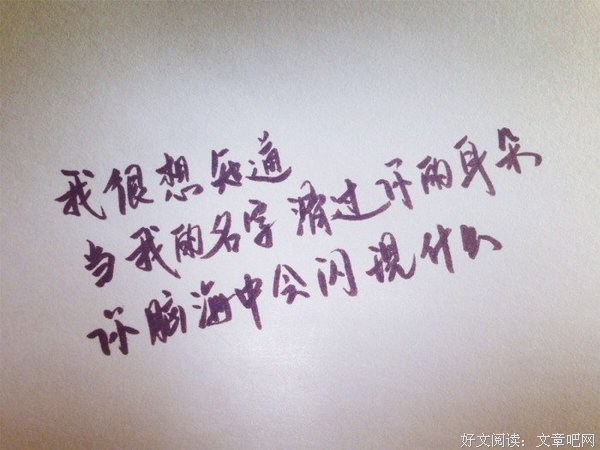 我很想知道
当我的名字滑过你的耳朵
你脑海中会闪现什么
好文阅读：文章吧网